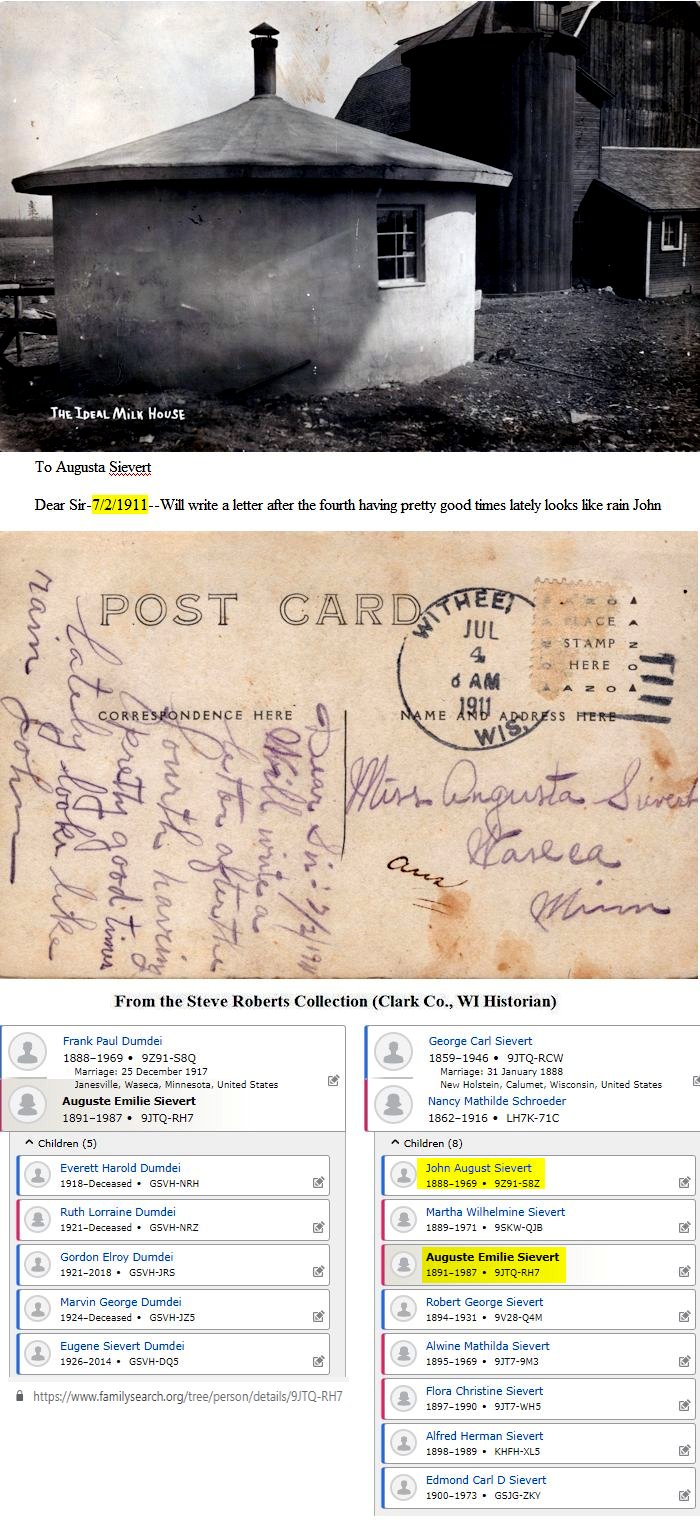 THE IDEAL MILK HOUSE
To Augusta Sievert
Dear Sir-7/2/1911--Will write a letter after the fourth having pretty good times lately looks like rain John
POST CARD
CORRESPONDENCE HERE
NAME AND ADDRESS HERE
WITHEE,
JUL
4
6 AM
1911
WIS.
AZO
PLACE
STAMP
HERE
AZO
Dear Sir:- 7/2/1911
Will write a
letter after the
fourth having
pretty good times
lately looks like
rain
John
Miss Augusta Sievert
Waseca
Minn
ans
From the Steve Roberts Collection (Clark Co., WI Historian)
Frank Paul Dumdei
1888–1969 • 9Z91-S8Q
Marriage: 25 December 1917
Janesville, Waseca, Minnesota, United States
Auguste Emilie Sievert
1891–1987 • 9JTQ-RH7
Children (5)
Everett Harold Dumdei
1918–Deceased • GSVH-NRH
Ruth Lorraine Dumdei
1921–Deceased • GSVH-NRZ
Gordon Elroy Dumdei
1921–2018 • GSVH-JRS
Marvin George Dumdei
1924–Deceased • GSVH-JZ5
Eugene Sievert Dumdei
1926–2014 • GSVH-DQ5
https://www.familysearch.org/tree/person/details/9JTQ-RH7
George Carl Sievert
1859–1946 • 9JTQ-RCW
Marriage: 31 January 1888
New Holstein, Calumet, Wisconsin, United States
Nancy Mathilde Schroeder
1862–1916 • LH7K-71C
Children (8)
John August Sievert
1888–1969 • 9Z91-S8Z
Martha Wilhelmine Sievert
1889–1971 • 9SKW-QJB
Auguste Emilie Sievert
1891–1987 • 9JTQ-RH7
Robert George Sievert
1894–1931 • 9V28-Q4M
Alwine Mathilda Sievert
1895–1969 • 9JT7-9M3
Flora Christine Sievert
1897–1990 • 9JT7-WH5
Alfred Herman Sievert
1898–1989 • KHFH-XL5
Edmond Carl D Sievert
1900–1973 • GSJG-ZKY